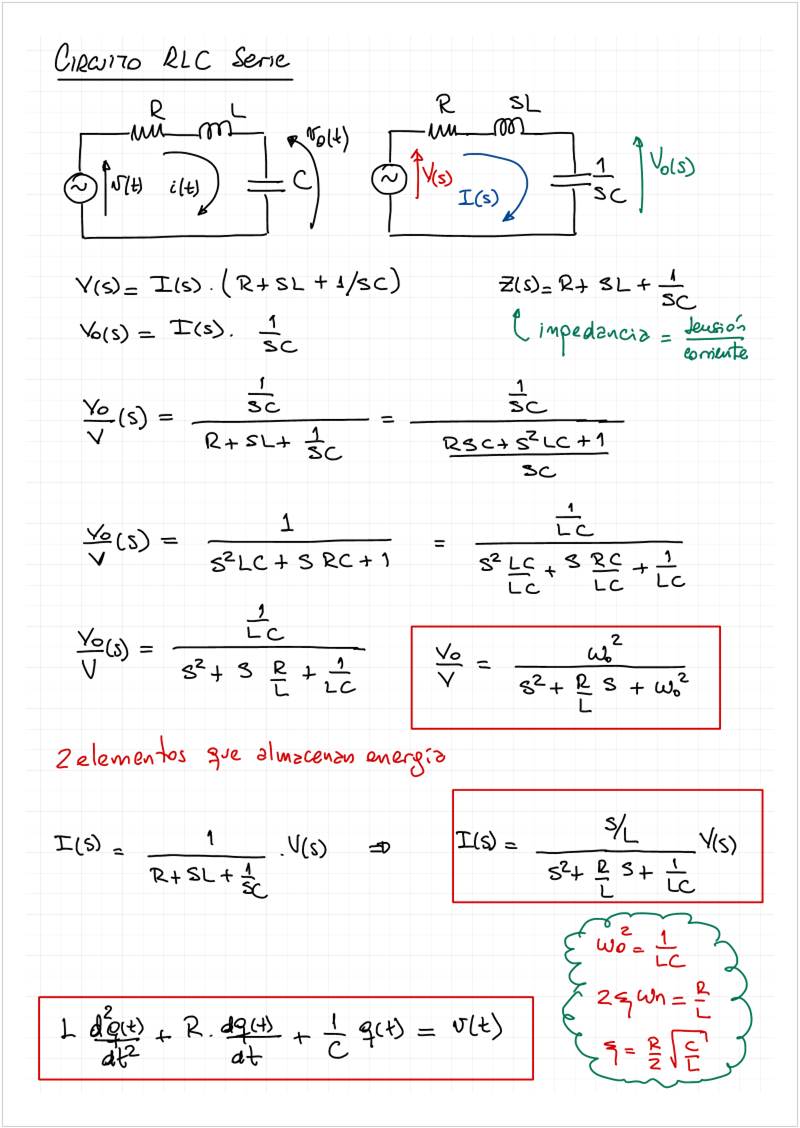 CIRCUITO RLC Serie
R L
v(t) i(t) C v₀(t)
R SL
V(s) I(s) 1/SC V₀(s)
V(s) = I(s) . (R + SL + 1/SC)
Z(s) = R + SL + 1/SC
V₀(s) = I(s) . 1/SC
impedancia = tensión/corriente
V₀/V (s) = (1/SC)/(R + SL + 1/SC) = (1/SC)/((RSC + S²LC + 1)/SC)
V₀/V (s) = 1/(S²LC + S RC + 1) = (1/LC)/(S² LC/LC + S RC/LC + 1/LC)
V₀/V (s) = (1/LC)/(S² + S R/L + 1/LC)
V₀/V = ω₀²/(S² + R/L S + ω₀²)
2 elementos que almacenan energía
I(s) = 1/(R + SL + 1/SC) . V(s) ⇒ I(s) = (S/L)/(S² + R/L S + 1/LC) V(s)
ω₀² = 1/LC
2ξωn = R/L
ξ = R/2 √(C/L)
L d²q(t)/dt² + R . dq(t)/dt + 1/C q(t) = v(t)